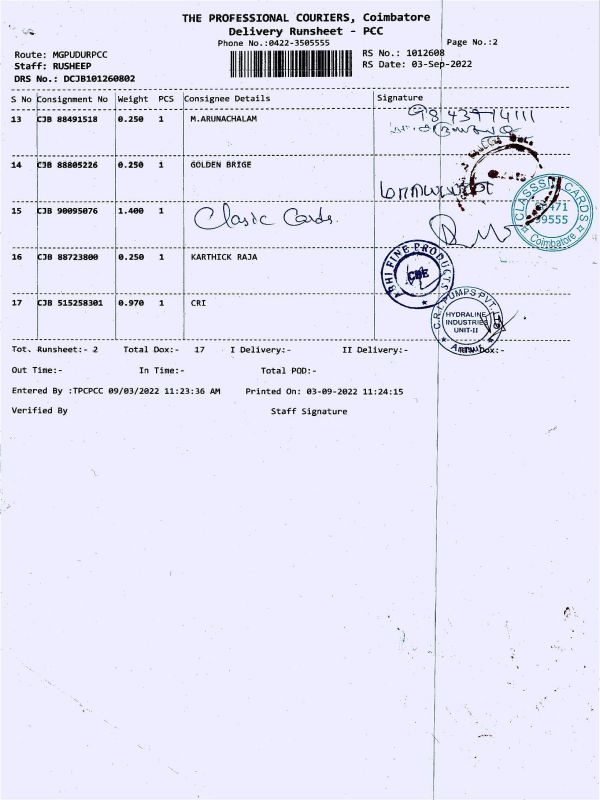 THE PROFESSIONAL COURIERS, Coimbatore
Delivery Runsheet - PCC
Phone No.:0422-3505555
Page No.:2
Route: MGPUDURPCC
RS No.: 1012608
Staff: RUSHEEP
RS Date: 03-Sep-2022
DRS No.: DCJB101260802
S No Consignment No Weight PCS Consignee Details Signature
13 CJB 88491518 0.250 1 M.ARUNACHALAM
14 CJB 88805226 0.250 1 GOLDEN BRIGE
15 CJB 90095076 1.400 1 Clasic Cards.
CLASSSIC CARDS
Coimbatore
16 CJB 88723800 0.250 1 KARTHICK RAJA
ABHI FINE PRODUCTS
CBE
17 CJB 515258301 0.970 1 CRI
C.R.I PUMPS PVT. LTD
HYDRALINE
INDUSTRIES
UNIT-II
Tot. Runsheet:- 2 Total Dox:- 17 I Delivery:- II Delivery:-
Out Time:- In Time:- Total POD:-
Entered By :TPCPCC 09/03/2022 11:23:36 AM Printed On: 03-09-2022 11:24:15
Verified By Staff Signature